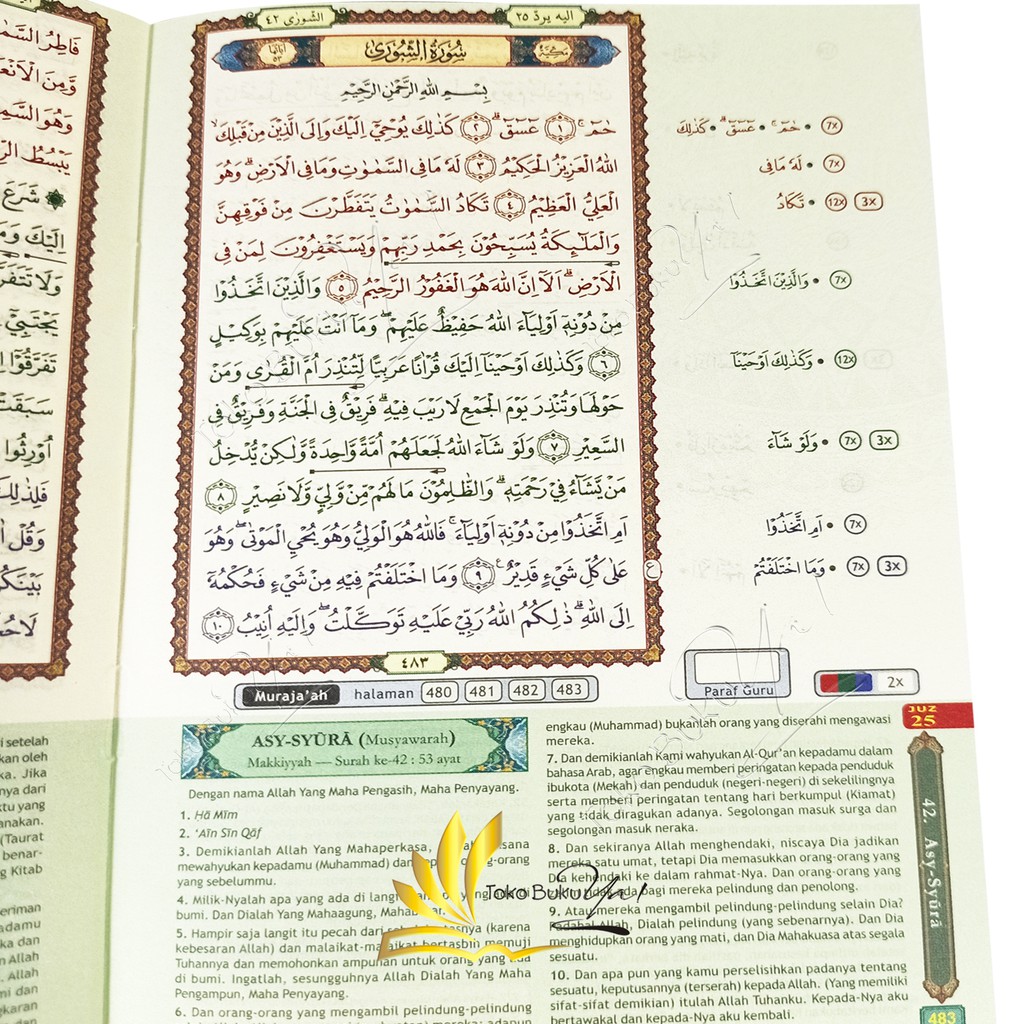 الشورى ٤٢
اليه يردّ ٢٥
مكية
سُوْرَةُ الشُّوْرٰى
اٰيَاتُهَا ٥٣
بِسْمِ اللّٰهِ الرَّحْمٰنِ الرَّحِيْمِ
حٰمۤ ۚ ﴿١﴾ عۤسۤقۤ ۗ ﴿٢﴾ كَذٰلِكَ يُوْحِيْٓ اِلَيْكَ وَاِلَى الَّذِيْنَ مِنْ قَبْلِكَ ۙ
اللّٰهُ الْعَزِيْزُ الْحَكِيْمُ ﴿٣﴾ لَهٗ مَا فِى السَّمٰوٰتِ وَمَا فِى الْاَرْضِ ۗ وَهُوَ
الْعَلِيُّ الْعَظِيْمُ ﴿٤﴾ تَكَادُ السَّمٰوٰتُ يَتَفَطَّرْنَ مِنْ فَوْقِهِنَّ
وَالْمَلٰۤىِٕكَةُ يُسَبِّحُوْنَ بِحَمْدِ رَبِّهِمْ وَيَسْتَغْفِرُوْنَ لِمَنْ فِى
الْاَرْضِ ۗ اَلَآ اِنَّ اللّٰهَ هُوَ الْغَفُوْرُ الرَّحِيْمُ ﴿٥﴾ وَالَّذِيْنَ اتَّخَذُوْا
مِنْ دُوْنِهٖٓ اَوْلِيَاۤءَ اللّٰهُ حَفِيْظٌ عَلَيْهِمْ ۖ وَمَآ اَنْتَ عَلَيْهِمْ بِوَكِيْلٍ
﴿٦﴾ وَكَذٰلِكَ اَوْحَيْنَآ اِلَيْكَ قُرْاٰنًا عَرَبِيًّا لِّتُنْذِرَ اُمَّ الْقُرٰى وَمَنْ
حَوْلَهَا وَتُنْذِرَ يَوْمَ الْجَمْعِ لَا رَيْبَ فِيْهِ ۗ فَرِيْقٌ فِى الْجَنَّةِ وَفَرِيْقٌ فِى
السَّعِيْرِ ﴿٧﴾ وَلَوْ شَاۤءَ اللّٰهُ لَجَعَلَهُمْ اُمَّةً وَّاحِدَةً وَّلٰكِنْ يُّدْخِلُ
مَنْ يَّشَاۤءُ فِيْ رَحْمَتِهٖ ۗ وَالظّٰلِمُوْنَ مَا لَهُمْ مِّنْ وَّلِيٍّ وَّلَا نَصِيْرٍ ﴿٨﴾
اَمِ اتَّخَذُوْا مِنْ دُوْنِهٖٓ اَوْلِيَاۤءَ ۚ فَاللّٰهُ هُوَ الْوَلِيُّ وَهُوَ يُحْيِ الْمَوْتٰى ۖ وَهُوَ
عَلٰى كُلِّ شَيْءٍ قَدِيْرٌ ࣖ ﴿٩﴾ وَمَا اخْتَلَفْتُمْ فِيْهِ مِنْ شَيْءٍ فَحُكْمُهٗٓ
اِلَى اللّٰهِ ۗ ذٰلِكُمُ اللّٰهُ رَبِّيْ عَلَيْهِ تَوَكَّلْتُ ۖ وَاِلَيْهِ اُنِيْبُ ﴿١٠﴾
ع
٤٨٣
7x • حٰمۤ ۚ • عۤسۤقۤ ۗ • كَذٰلِكَ
7x • لَهٗ مَا فِى
3x 12x • تَكَادُ
7x • وَالَّذِيْنَ اتَّخَذُوْا
12x • وَكَذٰلِكَ اَوْحَيْنَآ
3x 7x • وَلَوْ شَاۤءَ
7x • اَمِ اتَّخَذُوْا
3x 7x • وَمَا اخْتَلَفْتُمْ
Muraja'ah halaman 480 481 482 483
Paraf Guru
2x
JUZ
25
42. Asy-Syūrā
483
ASY-SYŪRĀ (Musyawarah)
Makkiyyah — Surah ke-42 : 53 ayat
Dengan nama Allah Yang Maha Pengasih, Maha Penyayang.
1. Ḥā Mīm
2. 'Aīn Sīn Qāf
3. Demikianlah Allah Yang Mahaperkasa,
mewahyukan kepadamu (Muhammad) dan orang-orang
yang sebelummu.
4. Milik-Nyalah apa yang ada di
bumi. Dan Dialah Yang Mahaagung,
5. Hampir saja langit itu pecah dari (karena
kebesaran Allah) dan malaikat-malaikat bertasbih memuji
Tuhannya dan memohonkan ampunan untuk orang yang ada
di bumi. Ingatlah, sesungguhnya Allah Dialah Yang Maha
Pengampun, Maha Penyayang.
6. Dan orang-orang yang mengambil pelindung-pelindung
engkau (Muhammad) bukanlah orang yang diserahi mengawasi
mereka.
7. Dan demikianlah Kami wahyukan Al-Qur'an kepadamu dalam
bahasa Arab, agar engkau memberi peringatan kepada penduduk
ibukota (Mekah) dan penduduk (negeri-negeri) di sekelilingnya
serta memberi peringatan tentang hari berkumpul (Kiamat)
yang tidak diragukan adanya. Segolongan masuk surga dan
segolongan masuk neraka.
8. Dan sekiranya Allah menghendaki, niscaya Dia jadikan
mereka satu umat, tetapi Dia memasukkan orang-orang yang
Dia kehendaki ke dalam rahmat-Nya. Dan orang-orang yang
bagi mereka pelindung dan penolong.
9. Atau mereka mengambil pelindung-pelindung selain Dia?
Padahal Allah, Dialah pelindung (yang sebenarnya). Dan Dia
menghidupkan orang yang mati, dan Dia Mahakuasa atas segala
sesuatu.
10. Dan apa pun yang kamu perselisihkan padanya tentang
sesuatu, keputusannya (terserah) kepada Allah. (Yang memiliki
sifat-sifat demikian) itulah Allah Tuhanku. Kepada-Nya aku
bertawakal dan kepada-Nya aku kembali.
Toko Buku